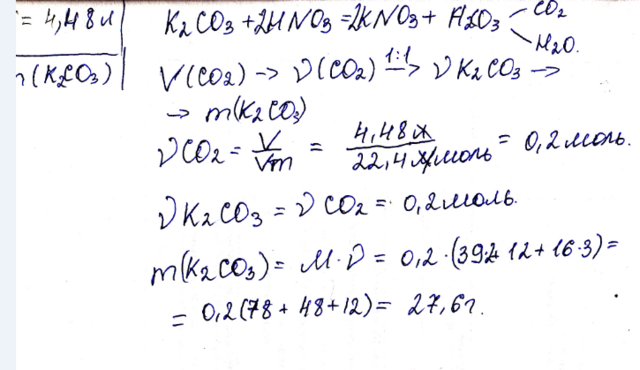 = 4,48л
(K₂CO₃)
K₂CO₃ + 2HNO₃ = 2KNO₃ + H₂CO₃ CO₂ H₂O.
V(CO₂) → ν(CO₂) 1:1 → ν K₂CO₃ →
→ m(K₂CO₃)
νCO₂ = V/Vm = 4,48л/22,4л/моль = 0,2моль.
νK₂CO₃ = νCO₂ = 0,2моль.
m(K₂CO₃) = M·ν = 0,2·(39·2+12+16·3) =
= 0,2(78+48+12) = 27,6г.